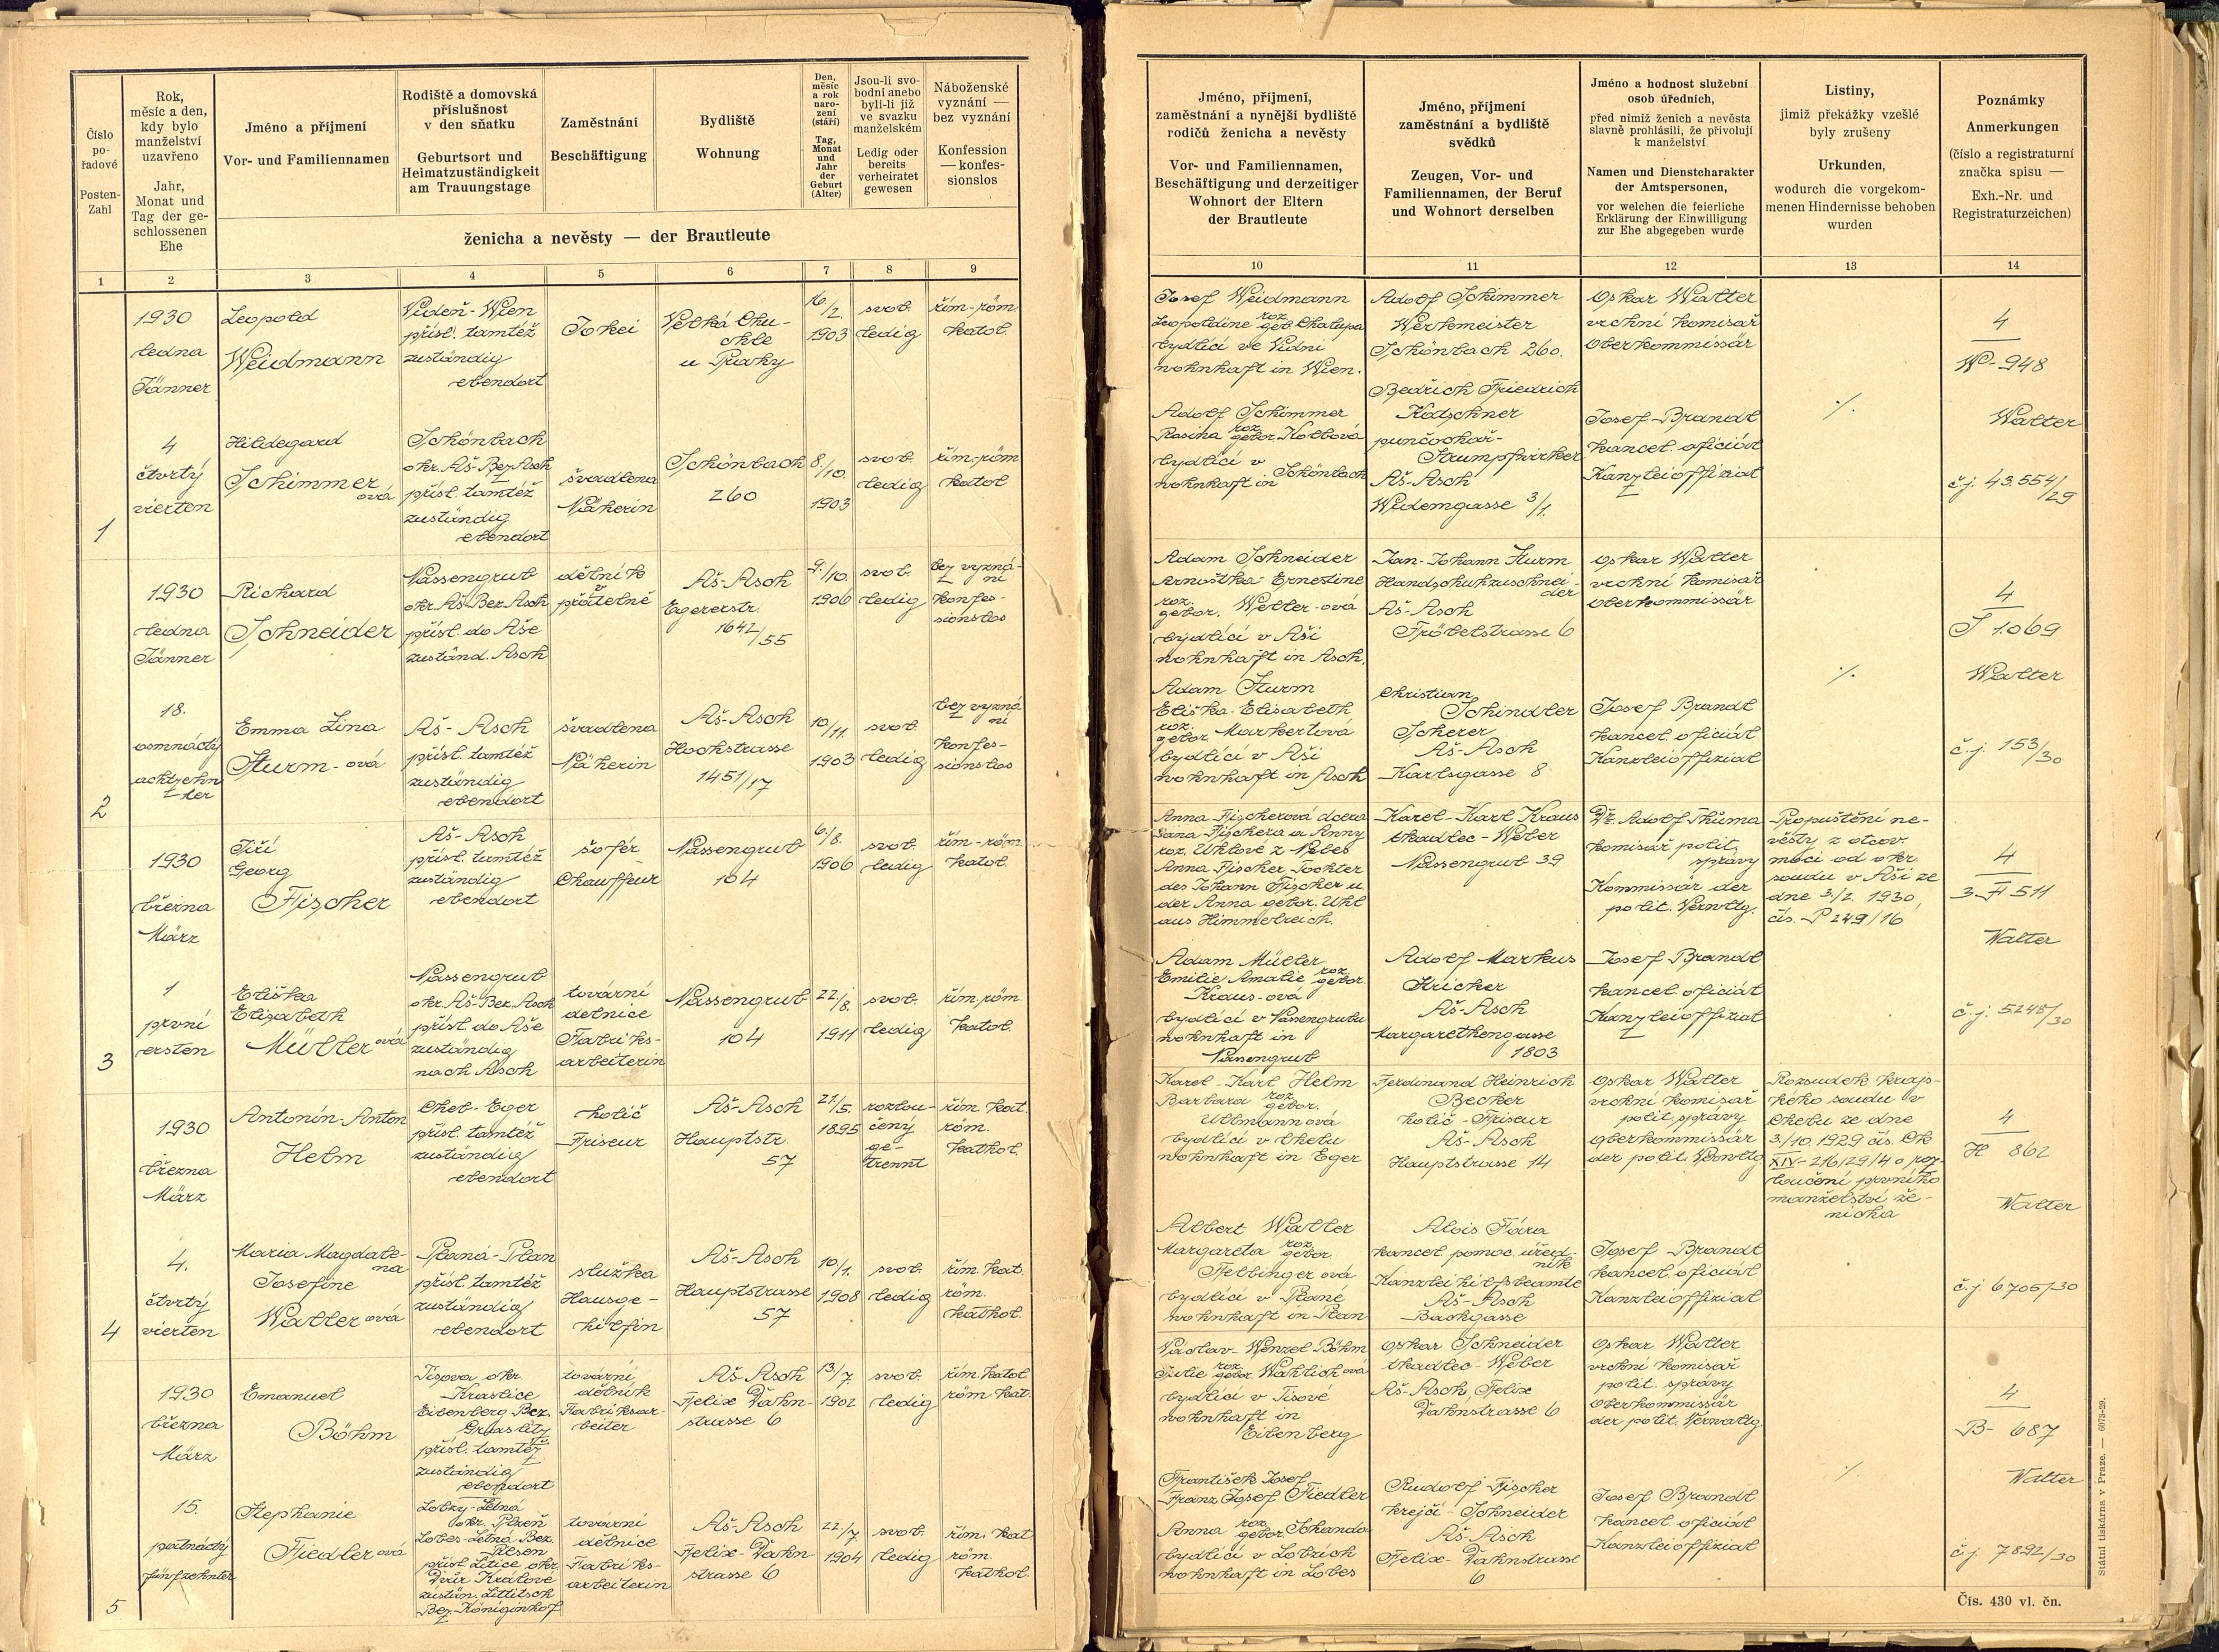 Číslo
po-
řadové
Posten-
Zahl
Rok,
měsíc a den,
kdy bylo
manželství
uzavřeno
Jahr,
Monat und
Tag der ge-
schlossenen
Ehe
Jméno a příjmení
Vor- und Familiennamen
Rodiště a domovská
příslušnost
v den sňatku
Geburtsort und
Heimatzuständigkeit
am Trauungstage
Zaměstnání
Beschäftigung
Bydliště
Wohnung
Den,
měsíc
a rok
naro-
zení
(stáří)
Tag,
Monat
und
Jahr
der
Geburt
(Alter)
Jsou-li svo-
bodni anebo
byli-li již
ve svazku
manželském
Ledig oder
bereits
verheiratet
gewesen
Náboženské
vyznání —
bez vyznání
Konfession
— konfes-
sionslos
ženicha a nevěsty — der Brautleute
1 2 3 4 5 6 7 8 9
1930
ledna
Jänner
4
čtvrtý
vierten
1
Leopold
Weidmann
Videň-Wien
přísl. tamtéž
zuständig
ebendort
Jokei
Velká Chu-
chle
u Prahy
16/2.
1903
svob.
ledig
řím-röm
katol.
Hildegard
Schimmer
ová
Schönbach
okr. Aš-Bez Asch
přísl. tamtéž
zuständig
ebendort
švadlena
Näherin
Schönbach
260
8./10.
1903
svob.
ledig
řím-röm
katol
1930
ledna
Jänner
18.
osmnáctý
achtzehn
ter
2
Richard
Schneider
Nassengrub
okr. Aš-Bez. Asch
přísl. do Aše
zuständ. Asch
dělník
přátelné
Aš-Asch
Egererstr.
1642/55
9./10.
1906
svob.
ledig
bez vyzná-
ní
konfes-
sionslos
Emma Lina
Sturm-ová
Aš-Asch
přísl. tamtéž
zuständig
ebendort
švadlena
Näherin
Aš-Asch
Hochstrasse
1451/17
10/11.
1903
svob.
ledig
bez vyzná
ní
konfes-
sionslos
1930
března
März
1
první
ersten
3
Jiří
Georg
Fischer
Aš-Asch
přísl. tamtéž
zuständig
ebendort
šofér
Chauffeur
Nassengrub
104
6./8.
1906
svob.
ledig
řím-röm.
katol.
Eliška
Elisabeth
Müller ová
Nassengrub
okr. Aš-Bez. Asch
přísl. do Aše
zuständig
nach Asch
tovární
delnice
Fabriks-
arbeiterin
Nassengrub
104
22./8.
1911
svob.
ledig
řím.röm.
katol.
1930
března
März
4.
čtvrtý
vierten
4
Antonín-Anton
Helm
Cheb-Eger
přísl. tamtéž
zuständig
ebendort
holič
Friseur
Aš-Asch
Hauptstr.
57
21./5.
1895
rozlou-
čený
ge-
trennt
řím. kat.
röm.
kathol.
Maria Magdale-
na
Josefine
Walter ová
Planá-Plan
přísl. tamtéž
zuständig
ebendort
služka
Hausge-
hilfin
Aš-Asch
Hauptstrasse
57
10./1.
1908
svob.
ledig
řím. kat.
röm.
kathol.
1930
března
März
15.
patnáctý
fünfzehnter
5
Emanuel
Böhm
Tisova okr.
Kraslice
Eibenberg Bez.
Graslitz
přísl. tamtéž
zuständig
ebendort
tovární
dělník
Fabriksar-
beiter
Aš-Asch
Felix Dahn-
strasse 6
13./7.
1902
svob.
ledig
řím. katol.
röm kat.
Stephanie
Fiedler ová
Lobzy-Letná
okr. Plzeň
Lobes-Letná Bez.
Pilsen
přísl. Litice okr.
Dvůr Králové
zustän. Littitsch
Bez. Königinhof
tovární
dělnice
Fabriks-
arbeiterin
Aš-Asch
Felix-Dahn
strasse 6
22./7.
1904
svob.
ledig
řím. kat
röm.
kathol.
Jméno, příjmení,
zaměstnání a nynější bydliště
rodičů ženicha a nevěsty
Vor- und Familiennamen,
Beschäftigung und derzeitiger
Wohnort der Eltern
der Brautleute
Jméno, příjmení
zaměstnání a bydliště
svědků
Zeugen, Vor- und
Familiennamen, der Beruf
und Wohnort derselben
Jméno a hodnost služební
osob úředních,
před nimiž ženich a nevěsta
slavně prohlásili, že přivolují
k manželství
Namen und Dienstcharakter
der Amtspersonen,
vor welchen die feierliche
Erklärung der Einwilligung
zur Ehe abgegeben wurde
Listiny,
jimiž překážky vzešlé
byly zrušeny
Urkunden,
wodurch die vorgekom-
menen Hindernisse behoben
wurden
Poznámky
Anmerkungen
(číslo a registraturní
značka spisu —
Exh.-Nr. und
Registraturzeichen)
10 11 12 13 14
Josef Weidmann
Leopoldine roz. geb. Chalupa
bydlící ve Vídni
wohnhaft in Wien.
Adolf Schimmer
Rosina roz. gebor. Kolbová
bydlící v
wohnhaft in Schönbach
Adolf Schimmer
Werkmeister
Schönbach 260.
Bedřich Friedrich
Katschner
punčochář-
Strumpfwirker
Aš-Asch
Widemgasse 3/1.
Oskar Walter
vrchní komisař
Oberkommissär
Josef Brandt
kancel. oficiál
Kanzleioffizial
./.
4
W-948
Walter
č.j. 43.554/29
Adam Schneider
Arnoštka-Ernestine
roz.
gebor. Wetter-ová
bydlící v Aši
wohnhaft in Asch,
Adam Sturm
Eliška-Elisabeth
roz.
gebor. Markertová
bydlící v Aši
wohnhaft in Asch
Jan-Johann Sturm
Handschuhzuschnei-
der
Aš-Asch
Fröbelstrasse 6
Christian
Schindler
Scherer
Aš-Asch
Karlsgasse 8
Oskar Walter
vrchní komisař
Oberkommissär
Josef Brandt
kancel. oficiál
Kanzleioffizial
./.
4
S 1.069
Walter
č.j. 153/30
Anna Fischerová dcera
Jana Fischera a Anny
roz. Uhlové z Nebes
Anna Fischer Tochter
des Johann Fischer u
der Anna gebor. Uhl
aus Himmelreich.
Adam Müller
Emilie Amalie roz. gebor.
Kraus-ová
bydlící v Nassengrubu
wohnhaft in
Nassengrub
Karel-Karl Kraus
tkadlec-Weber
Nassengrub 39
Adolf Markus
Stricher
Aš-Asch
Margarethengasse
1803
Dr. Adolf Thüma
komisař polit.
správy
Kommissär der
polit. Verwltg.
Josef Brandt
kancel. oficiál
Kanzleioffizial
Propuštění ne-
věsty z otcov.
moci od okr.
soudu v Aši ze
dne 3./2. 1930,
čís. P 249/16
4
3-F 511
Walter
č.j. 5248/30
Karel-Karl Helm
Barbara roz. gebor.
Ullmannová
bydlící v Chebu
wohnhaft in Eger
Albert Walter
Margareta roz. gebor.
Felbinger ová
bydlící v Plané
wohnhaft in Plan
Ferdinand Heinrich
Becker
holič-Friseur
Aš-Asch
Hauptstrasse 14
Alois Fára
kancel. pomoc. úřed-
ník
Kanzleihilfsbeamte
Aš-Asch
Bachgasse
Oskar Walter
vrchní komisař
polit. správy
Oberkommissär
der polit. Verwltg.
Josef Brandt
kancel. oficiál
Kanzleioffizial
Rozsudek kraj-
kého soudu v
Chebu ze dne
3./10. 1929 čís. Ck
XIV-216/29/4 o roz-
loučení prvního
manželství že-
nicha
4
H 862
Walter
č.j. 6705/30
Václav-Wenzel Böhm
Julie roz. gebor. Wahlichová
bydlící v Tisové
wohnhaft in
Eibenberg
František Josef
Franz Josef Fiedler
Anna roz. gebor. Schanda
bydlící v Lobzích
wohnhaft in Lobes
Oskar Schneider
tkadlec-Weber
Aš-Asch, Felix
Dahnstrasse 6
Rudolf Fischer
krejčí-Schneider
Aš-Asch
Felix-Dahnstrasse
6
Oskar Walter
vrchní komisař
polit. správy
Oberkommissär
der polit. Verwaltg.
Josef Brandt
kancel. oficiál
Kanzleioffizial
./.
4
B-687
Walter
č.j. 7892/30
Státní tiskárna v Praze. — 6073-29.
Čís. 430 vl. čn.